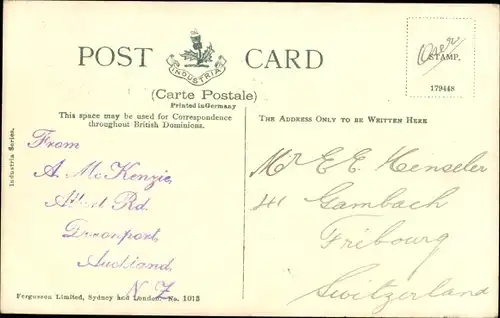 POST CARD
INDUSTRIA
(Carte Postale)
Printed in Germany
Over
STAMP.
179448
This space may be used for Correspondence
throughout British Dominions.
THE ADDRESS ONLY TO BE WRITTEN HERE
Industria Series.
From
A. McKenzie,
Albert Rd.
Devonport,
Auckland,
N Z
Mr E E. Henseler
41 Gambach
Fribourg
Switzerland
Fergusson Limited, Sydney and London. No. 1013